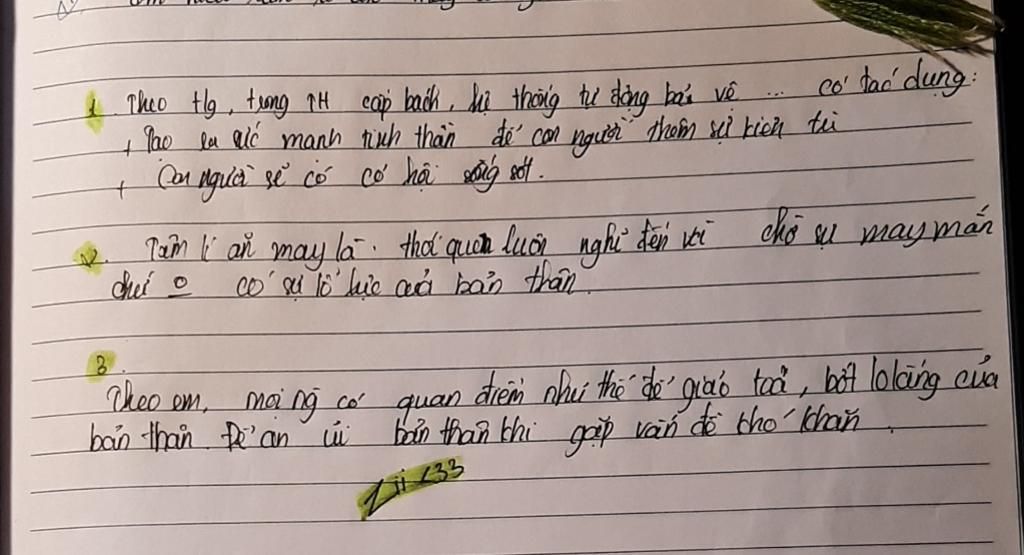 1. Theo tg, trong TH cấp bách, hệ thống tự động bảo vệ ... có tác dụng:
+ Tạo ra sức mạnh tinh thần để con người thoát sự kích từ
+ Con người sẽ có cơ hội sống sót.
2. Tâm lí ăn may là thói quen luôn nghĩ đến và chờ sự may mắn
chứ 0 có sự lỗ lực của bản thân.
3.
Theo em, mọi ng có quan điểm như thế để giáo toả, bớt lo lắng của
bản thân. Để an ủi bản thân khi gặp vấn đề khó khăn.
Zii <33